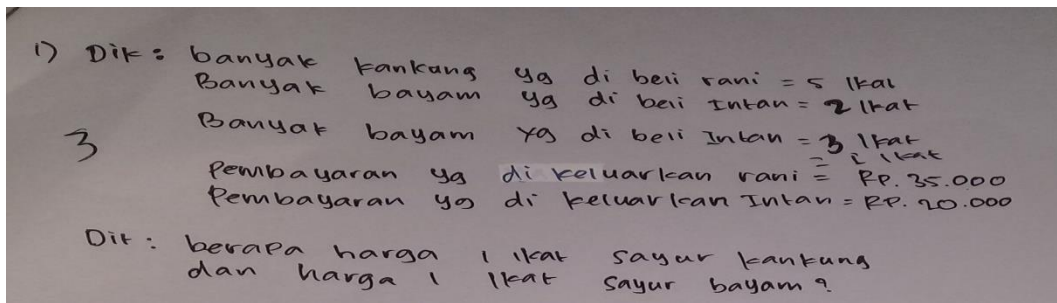 1) Dik : banyak kankung yg di beli rani = 5 Ikat
Banyak bayam yg di beli Intan = 2 Ikat
3
Banyak bayam yg di beli Intan = 3 Ikat
= 1 Ikat
Pembayaran yg di keluarkan rani = RP. 35.000
Pembayaran yg di keluarkan Intan = RP. 20.000
Dit : berapa harga 1 ikat sayur kankung
dan harga 1 Ikat sayur bayam ?